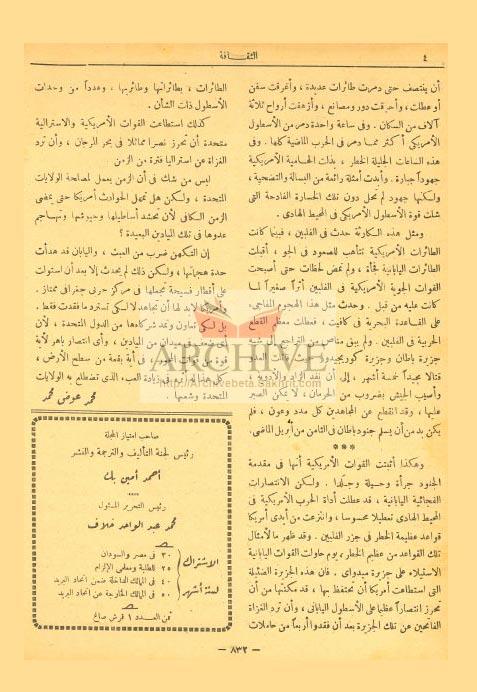 ٤
الثقـــافة
أن ينتصف حتى دمرت طائرات عديدة ، وأغرقت سفن
أو عطلت ، وأحرقت دور ومصانع ، وأزهقت أرواح ثلاثة
آلاف من السكان . وفى ساعة واحدة دمر من الأسطول
الأمريكى أكثر مما دمر فى الحرب الماضية كلها . وفى
هذه الساعات الجليلة الخطر ، بذلت الحامية الأمريكية
جهوداً جبارة . وأبدت أمثلة رائعة من البسالة والتضحية ،
ولكنها جهود لم تحل دون تلك الخسارة الفادحة التى
شلت قوة الأسطول الأمريكى فى المحيط الهادى .
ومثل هذه الكارثة حدث فى الفلبين ، فبينما كانت
الطائرات الأمريكية تتأهب للصعود فى الجو ، أقبلت
الطائرات اليابانية فجأة ، ولم تمض لحظات حتى أصبحت
القوات الجوية الأمريكية فى الفلبين أثراً صغيراً لما
كانت عليه من قبل . وحدث مثل هذا الهجوم المفاجىء
على القاعدة البحرية فى كافيت ، فعطلت معظم القطع
الحربية فى الفلبين . ولم يبق مناص من التراجع إلى شبه
جزيرة باطان وجزيرة كوريجيدور حيث قاتلت العدو
قتالا مجيداً خمسة أشهر ، إلى أن نفد الزاد والأدوية ،
وأصيب الجيش بضروب من الحرمان ، لا يمكن الصبر
عليها ، وقد انقطع عن المجاهدين كل مدد وعون ، فلم
يكن بد من أن يسلم جنود باطان فى الثامن من أبريل الماضى.
* * *
وهكذا أثبتت القوات الأمريكية أنها فى مقدمة
الجنود جرأة وحيلة وجلداً . ولكن الانتصارات
الفجائية اليابانية ، قد عطلت أداة الحرب الأمريكية فى
المحيط الهادى تعطيلا محسوسا ، وانتزعت من أيدى أمريكا
قواعد عظيمة الخطر فى جزر الفلبين . وقد ظهر ما لأمثال
تلك القواعد من عظيم الخطر ، يوم حاولت القوات اليابانية
الاستيلاء على جزيرة ميدواى . فان هذه الجزيرة الضئيلة
التى استطاعت أمريكا أن تحتفظ بها ، قد مكنتها من أن
تحرز انتصاراً عظيما على الأسطول اليابانى ، وأن ترد الغزاة
الفاتحين عن تلك الجزيرة بعد أن فقدوا أربعاً من حاملات
الطائرات ، بطائراتها وطائريها ، وعدداً من وحدات
الأسطول ذات الشأن .
كذلك استطاعت القوات الأمريكية والاسترالية
متحدة أن تحرز نصراً مماثلا فى بحر المرجان ، وأن ترد
الغزاة عن استراليا فترة من الزمن
ليس من شك فى أن الزمن يعمل لمصلحة الولايات
المتحدة ، ولكن هل تمهل الحوادث أمريكا حتى يمضى
الزمن الكافى لأن تحشد أساطيلها وجيوشها وتهاجم
عدوها فى تلك الميادين البعيدة ؟
إن التكهن ضرب من العبث ، واليابان قد هدأت
حدة هجماتها ، ولكن ذلك لم يحدث إلا بعد أن استولت
على أقطار فسيحة تجعلها فى مركز حربى جغرافى ممتاز .
وأمريكا لابد لها أن تجاهد لا لكى تسترد ما فقدت فقط .
بل لكى تعاون وتمد شركاءها من الدول المتحدة ، لأن
أى ضعف فى ميدان من الميادين ، وأى انتصار باهر لأية
قوة من قوات المحور ، فى أية بقعة من سطح الأرض ،
كل هذا له أثره فى زيادة العبء الذى تضطلع به الولايات
المتحدة وشعبها .
محمد عوض محمد
ARCHIVE
http://Archivebeta.Sakhrit.com
صاحب امتياز المجلة
رئيس لجنة التأليف والترجمة والنشر
أحمد أمين بك
رئيس التحرير المسئول
محمد عبد الواحد خلاف
الاشتراك لستة أشهر
٣٠ فى مصر والسودان
٢٥ للطلبة ومعلمى الإلزام
٤٠ فى الممالك الداخلة ضمن اتحاد البريد
٥٠ فى الممالك الخارجة عن اتحاد البريد
ثمن العدد ١ قرش صاغ
— ٨٣٢ —